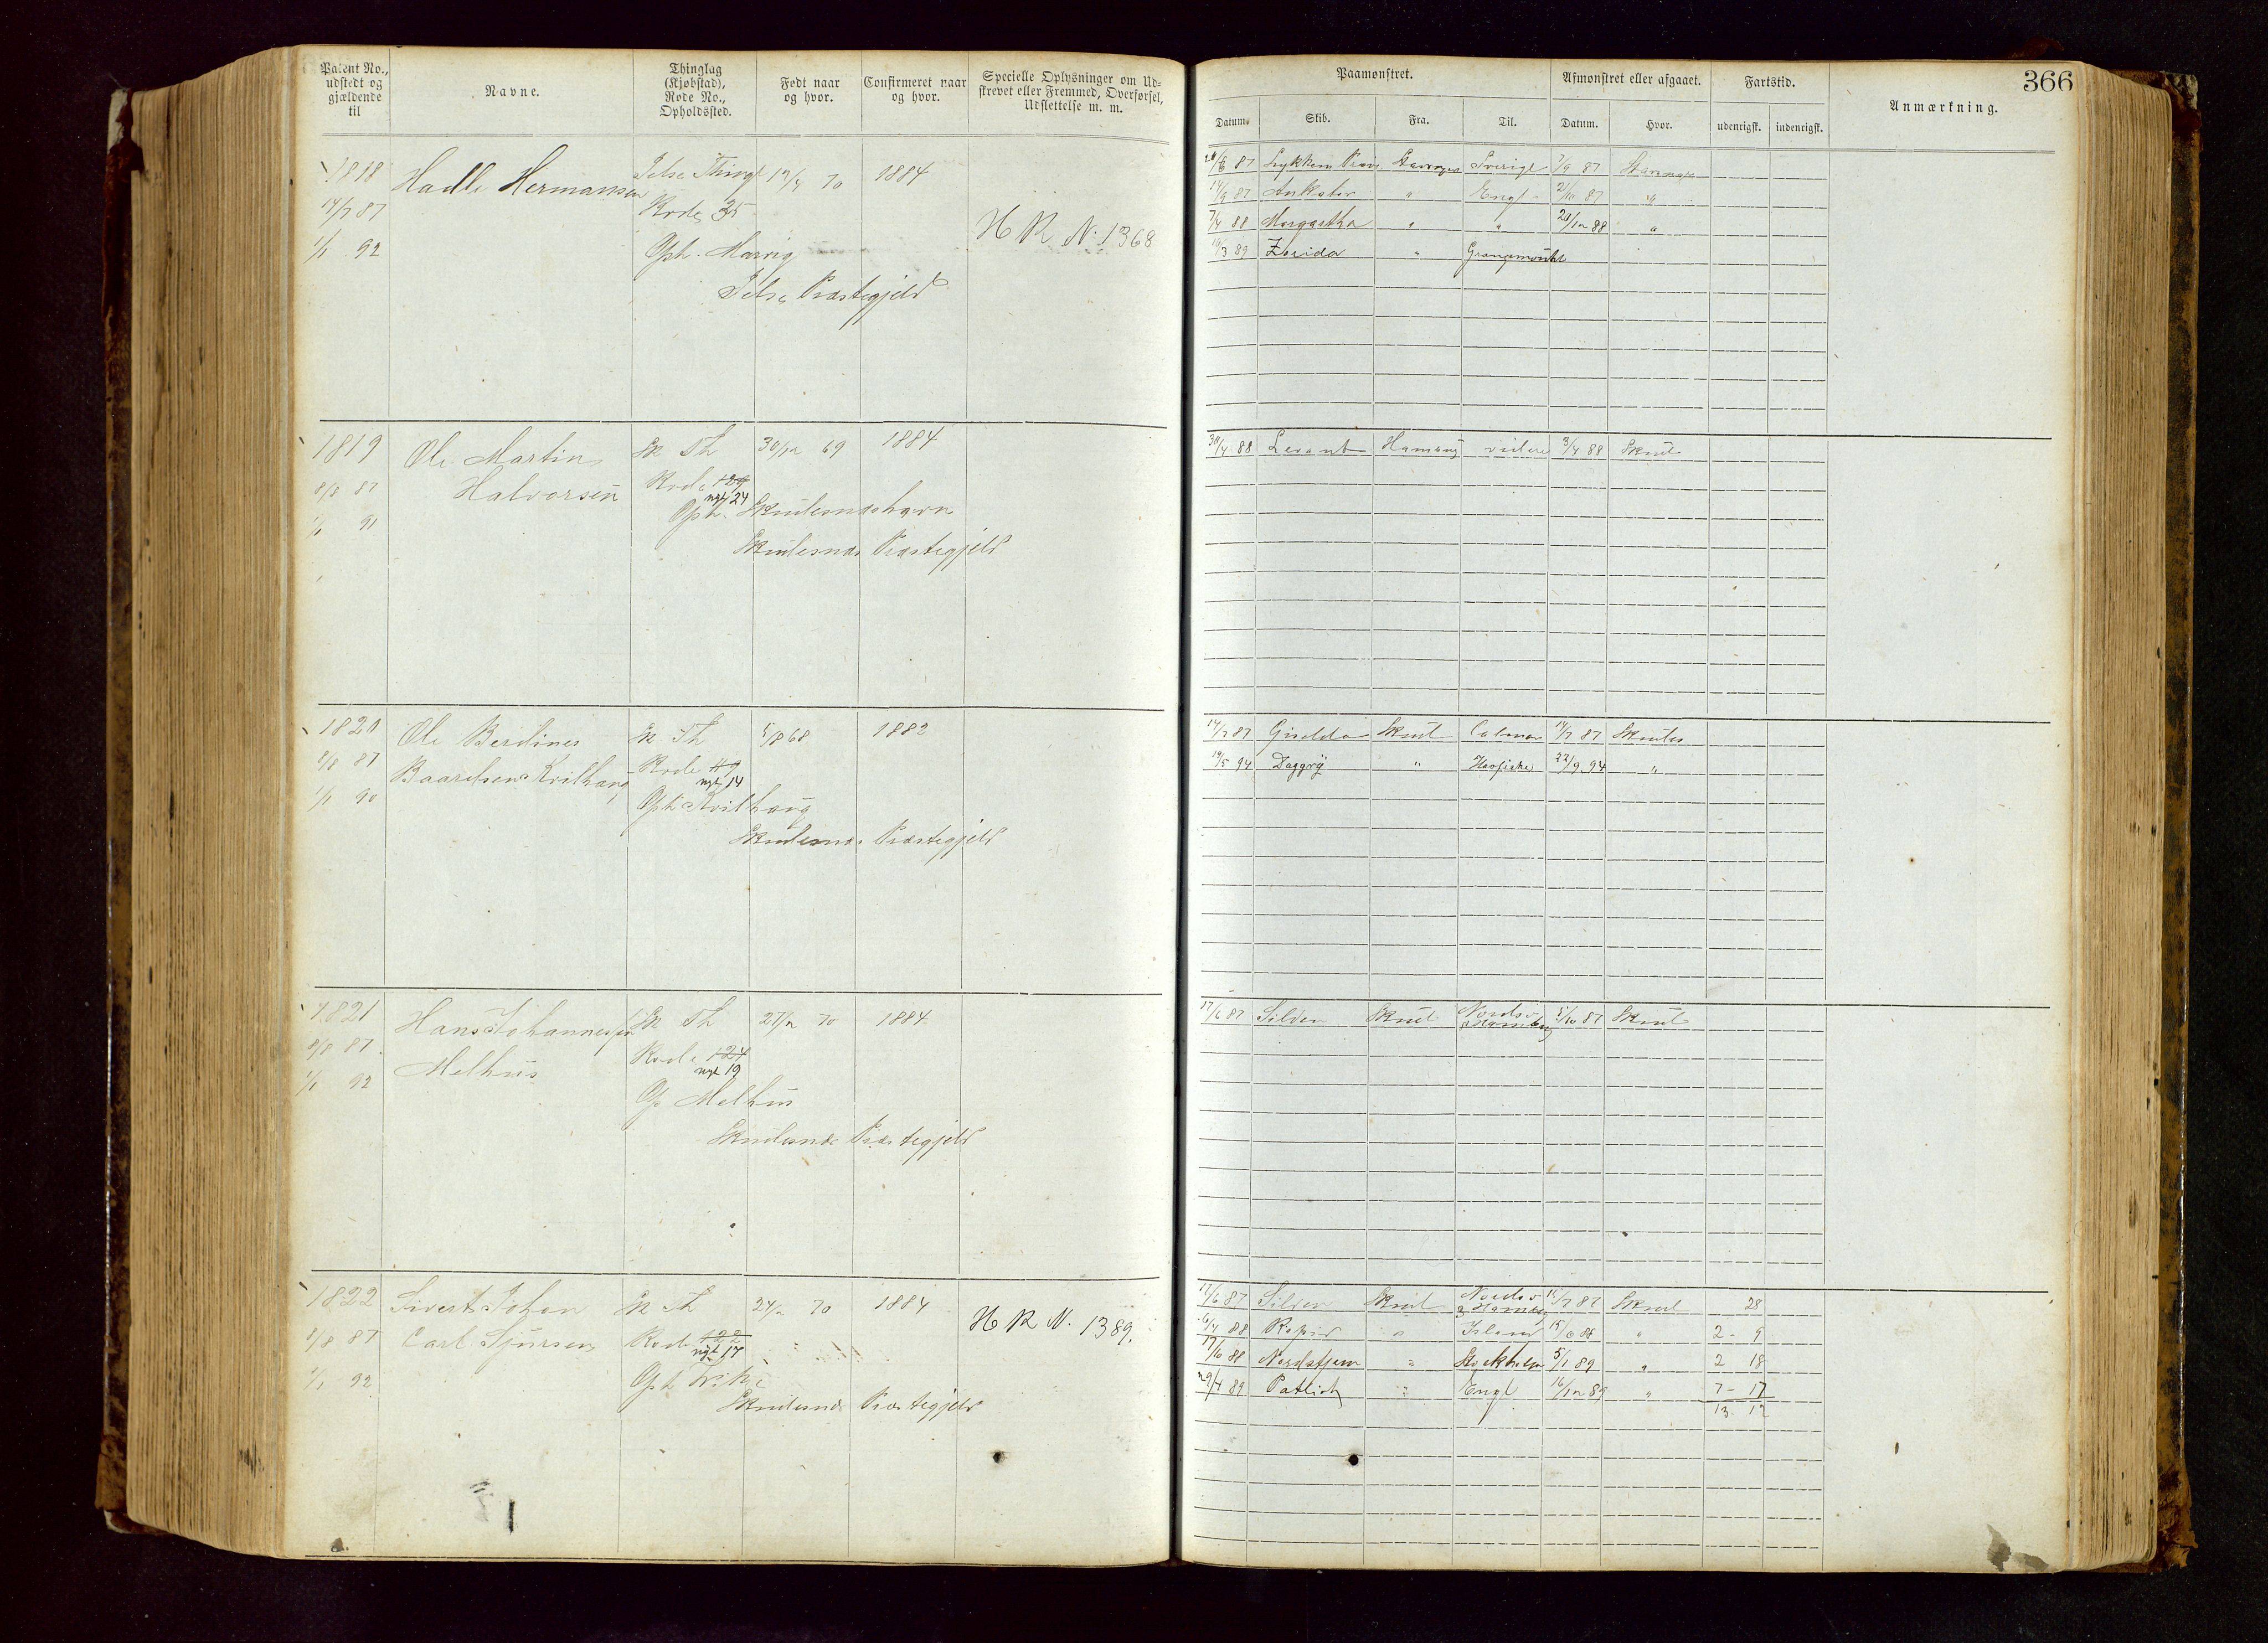 Patent No., udstedt og gjældende til
Navne.
Thinglag (Kjøbstad), Rode No., Opholdssted.
Født naar og hvor.
Confirmeret naar og hvor.
Specielle Oplysninger om Udskrevet eller Fremmed, Overførsel, Udslettelse m. m.
1818 Hadle Hermansen Jelse Thingl 19/4 70 1884
14/7 87 Rode 35
H R N. 1368
1/1 92 Oph. Marvig
Jelse Præstegjeld
1819 Ole Martin Sk Th 30/12 69 1884
8/8 87 Halvorsen Rode 129
nyt 24
1/1 91 Oph. Skudesnæshavn
Skudesnæs Præstegjeld
1820 Ole Berdines Sk Th 5/8 68 1882
8/8 87 Baardsen Kvilhaug Rode
nyt 14
1/1 90 Oph Kvilhaug
Skudesnæs Præstegjeld
1821 Hans Johannessen Sk Th 27/12 70 1884
8/8 87 Melhus Rode 124
nyt 19
1/1 92 Op Melhus
Skudesnæs Præstegjeld
1822 Sivert Johan Sk Th 24/12 70 1884
H R N. 1389.
8/8 87 Carl Sjursen Rode 122
nyt 17
1/1 92 Oph
Skudesnæs Præstegjeld
366
Paamønstret.
Afmønstret eller afgaaet.
Fartstid.
Anmærkning.
Datum. Skib. Fra. Til. Datum. Hvor. udenrigsk. indenrigsk.
87 Lykkens Prøve Stavanger Sverige 7/9 87 Stavanger
14/9 87 Ankator " Engl 2/10 87 "
7/4 88 Margartha " " 20/12 88 "
19/3 89 Zorida " Grangemouth
30/4 88 Levant Hamburg videre 3/4 88 Skud
14/7 87 Giselda Skud Calmar 14/7 87 Skudes
19/5 94 Daggry " Havfiske 22/9 94 "
17/6 87 Silden Skud Nordsø 5/10 87 Skud
& Hamburg
17/6 87 Silden Skud Nordsø 15/7 87 Skud 28
& Hamburg
6/4 88 Rapid " Island 15/6 88 " 2 - 9
17/10 88 Nordstjern " Stockholm 5/1 89 " 2 18
29/4 89 Patlick " Engl 16/12 89 " 7 - 17
13 12